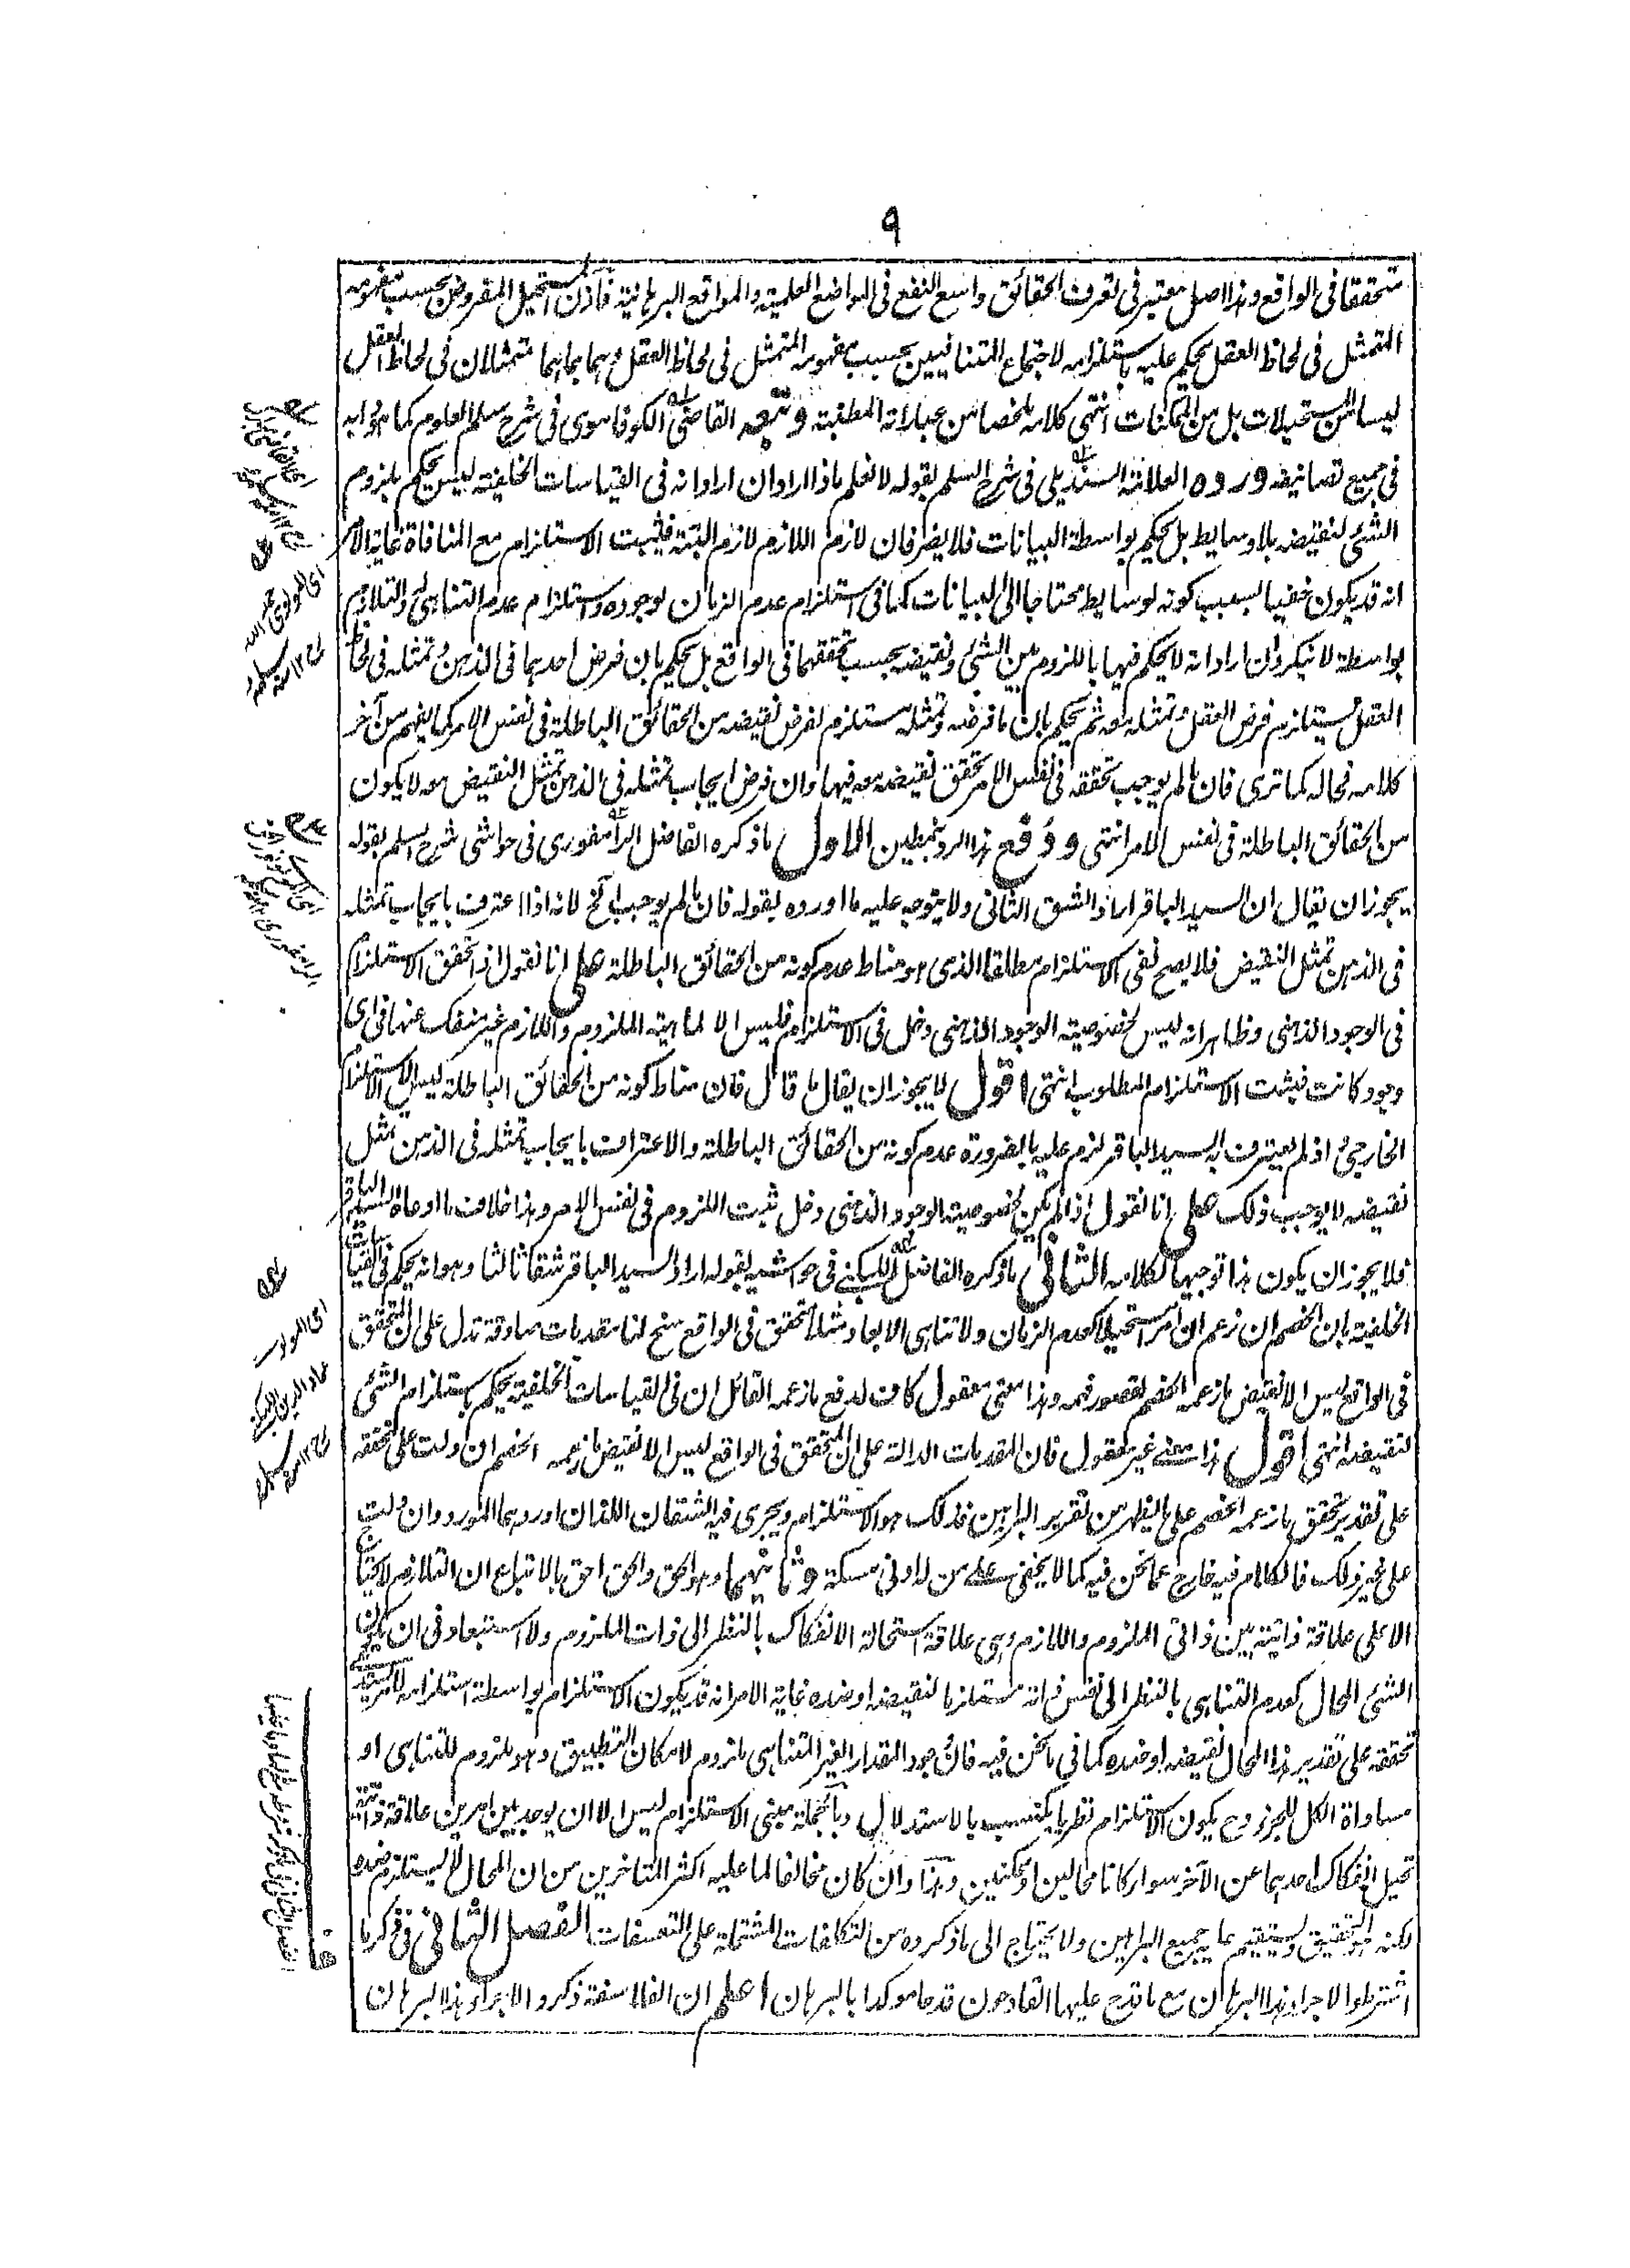 ٩
متحققا فى الواقع وهذا اصل معتبر فى تعرف الحقائق واسع النفع فى المواضع العلمية والمواقع البرهانية فاذن المستحيل المفروض بحسب مفهومه
المتمثل فى لحاظ العقل يحكم عليه باستلزامه لاجتماع المتنافيين بحسب مفهومه المتمثل فى لحاظ العقل وهما بما هما متمثلان فى لحاظ العقل
ليسا من المستحيلات بل من الممكنات انتهى كلامه ملخصا من عباراته المطنبة وتبعه القاضى الكوفاموى فى شرح سلم العلوم كما هو دابه
فى جميع تصانيفه ورده العلامة السنديلى فى شرح السلم بقوله لا نعلم ماذا اراد ان اراد انه فى القياسات الخلفية ليس يحكم بلزوم
الشئ لنقيضه بلا وسايط بل يحكم بواسطة البيانات فلا يضر فان لازم اللازم لازم البتة فيثبت الاستلزام مع المنافاة غاية الامر
انه قد يكون خفيا لسبب كونه لوسايط محتاجا الى البيانات كما فى استلزام عدم الزمان لوجوده واستلزام عدم التناهى له والتلازم
بواسطة لا ينكر وان اراد انه لا يحكم فيها باللزوم بين الشئ ونقيضه بحسب تحققهما فى الواقع بل يحكم بان فرض احدهما فى الذهن وتمثله فى لحاظ
العقل يستلزم فرض العقل وتمثله معه ثم يحكم بان ما فرضه وتمثله مستلزم لفرض نقيضه من الحقائق الباطلة فى نفس الامر كما يفهم من آخر
كلامه فحاله كما ترى فان ما لم يوجب تحققه فى نفس الامر تحقق نقيضه معه فيها وان فرض ايجاب تمثله فى الذهن تمثل النقيض معه لا يكون
من الحقائق الباطلة فى نفس الامر انتهى ودفع هذا الرد بنمطين الاول ما ذكره القاضل الرامفورى فى حواشى شرح السلم بقوله
يجوز ان يقال ان السيد الباقر اراد الشق الثانى ولا يتوجه عليه ما اورده بقوله فان ما لم يوجب الخ لانه اذا اعترف بايجاب تمثله
فى الذهن تمثل النقيض فلا يصح نفى الاستلزام مطلقا الذى هو مناط عدم كونه من الحقائق الباطلة على انا نقول اذا تحقق الاستلزام
فى الوجود الذهنى وظاهر انه ليس لخصوصية الوجود الذهنى دخل فى الاستلزام فليس الا لماهية الملزوم واللازم غير منفك عنها فى اى
وجود كانت فيثبت الاستلزام المطلوب انتهى اقول لا يجوز ان يقال ما قال فان مناط كونه من الحقائق الباطلة ليس الا الاستلزام
الخارجى اذ لم يعترف به السيد الباقر لزم عليه بالضرورة عدم كونه من الحقائق الباطلة والاعتراف بايجاب تمثله فى الذهن تمثل
نقيضه لا يوجب ذلك على انا نقول اذا لم يكن لخصوصية الوجود الذهنى دخل ثبت اللزوم فى نفس الامر وهذا خلاف ما ادعاه السيد الباقر
فلا يجوز ان يكون هذا توجيها لكلامه الثانى ما ذكره الفاضل اللبكنى فى حواشيه بقوله اراد السيد الباقر شقا ثالثا وهو انه يحكم فى القياسات
الخلفية بان الخصم ان زعم ان امرا مستحيلا كعدم الزمان ولا تناهى الابعاد مثلا متحقق فى الواقع سنح لنا مقدمات صادقة تدل على ان المتحقق
فى الواقع ليس الا نقيض ما زعمه الخصم لقصور فهمه وهذا معنى معقول كاف لدفع ما زعمه القائل ان فى القياسات الخلفية يحكم باستلزام الشئ
لنقيضه انتهى اقول هذا معنى غير معقول فان المقدمات الدالة على ان المتحقق فى الواقع ليس الا نقيض ما زعمه الخصم ان دلت على تحققه
على تقدير تحقق ما زعمه الخصم على ما يظهر من تقرير البراهين فذلك هو الاستلزام ويجرى فيه الشقان اللذان اوردهما المورد وان دلت
على غير ذلك فالكلام فيه خارج عما نحن فيه كما لا يخفى على من له ادنى مسكة وثانيهما وهو الحق والحق احق بالاتباع ان التلازم لا يحتاج
الا على علاقة ذاتية بين ذاتى الملزوم واللازم وهى علاقة استحالة الانفكاك بالنظر الى ذات الملزوم ولا استبعاد فى ان يكون
الشئ المحال كعدم التناهى بالنظر الى نفس ذاته مستلزما لنقيضه او ضده غاية الامر انه قد يكون الاستلزام بواسطة استلزامه لامر
تحققه على تقدير هذا المحال نقيضه او ضده كما فى ما نحن فيه فان وجود المقدار الغير المتناهى ملزوم لامكان التطبيق وهو ملزوم للتناهى او
مساواة الكل للجزء وح يكون الاستلزام نظريا يكتسب بالاستدلال وبالجملة مبنى الاستلزام ليس الا ان يوجد بين امرين علاقة ذاتية
تحيل انفكاك احدهما عن الآخر سواء كانا محالين او ممكنين وهذا وان كان مخالفا لما عليه اكثر المتاخرين من ان المحال لا يستلزم ضده
لكنه هو التحقيق ويستقيم عليه جميع البراهين ولا يحتاج الى ما ذكروه من التكلفات المشتملة على التعسفات الفصل الثانى فى ذكر ما
اشترطوا لاجراء هذا البرهان مع ما قدح عليها القادحون قدحا موكدا بالبرهان اعلم ان الفلاسفة ذكروا لاجراء هذا البرهان